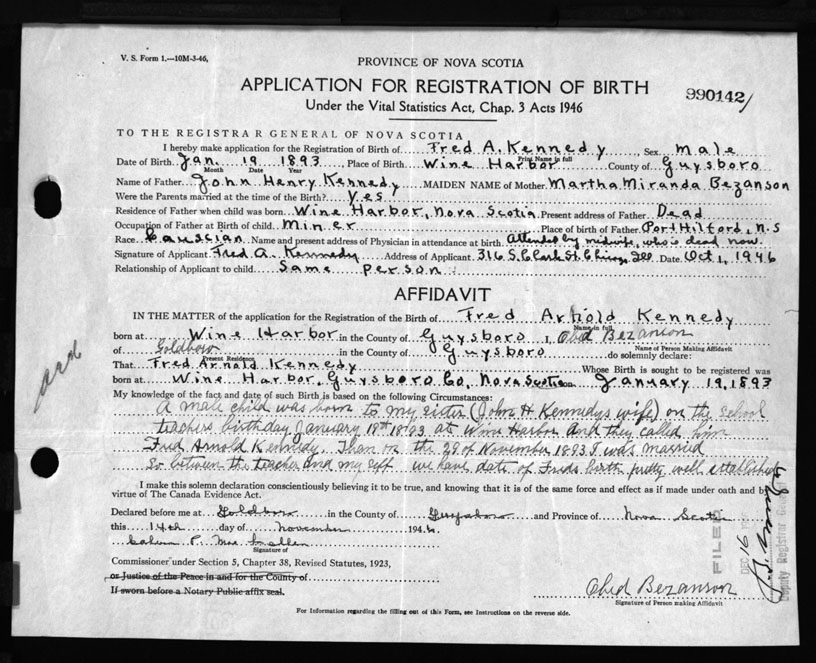 V. S. Form 1.—10M-3-46,
PROVINCE OF NOVA SCOTIA
APPLICATION FOR REGISTRATION OF BIRTH
990142/
Under the Vital Statistics Act, Chap. 3 Acts 1946
TO THE REGISTRAR GENERAL OF NOVA SCOTIA
I hereby make application for the Registration of Birth of Fred A. Kennedy, Sex Male
Print Name in full
Date of Birth Jan. 19 1893, Place of Birth Wine Harbor County of Guysboro
Month Date Year
Name of Father John Henry Kennedy MAIDEN NAME of Mother Martha Miranda Bezanson
Were the Parents married at the time of the Birth? Yes
Residence of Father when child was born Wine Harbor, Nova Scotia Present address of Father Dead
Occupation of Father at Birth of child Miner Place of birth of Father Port Hilford, N.S
Race Causcian Name and present address of Physician in attendance at birth. Attended by midwife, who is dead now.
Signature of Applicant Fred A. Kennedy Address of Applicant 316 S. Clark St. Chicago Ill Date Oct 1, 1946
Relationship of Applicant to child Same person
AFFIDAVIT
IN THE MATTER of the application for the Registration of the Birth of Fred Arnold Kennedy
Name in full
born at Wine Harbor in the County of Guysboro, I, Obed Bezanson
Name of Person Making Affidavit
of Goldboro in the County of Guysboro do solemnly declare:
Present Residence
That Fred Arnold Kennedy Whose Birth is sought to be registered was
born at Wine Harbor, Guysboro Co, Nova Scotia on January 19, 1893
My knowledge of the fact and date of such Birth is based on the following Circumstances:
A male child was born to my sister (John H Kennedys wife) on the school
teachers birthday January 19th 1893 at Wine Harbor And they called him
Fred Arnold Kennedy. Then on the 29 of November 1893 I was married
So between the teacher and my self we have date of Freds birth pretty well established
I make this solemn declaration conscientiously believing it to be true, and knowing that it is of the same force and effect as if made under oath and by
virtue of The Canada Evidence Act.
Declared before me at Goldboro in the County of Guysboro and Province of Nova Scotia
this 14th day of November 1946
Signature of
Commissioner under Section 5, Chapter 38, Revised Statutes, 1923,
or Justice of the Peace in and for the County of
If sworn before a Notary Public affix seal.
Obed Bezanson
Signature of Person making Affidavit
For Information regarding the filling out of this Form, see Instructions on the reverse side.
FILED
DEC 16
Deputy Registrar General